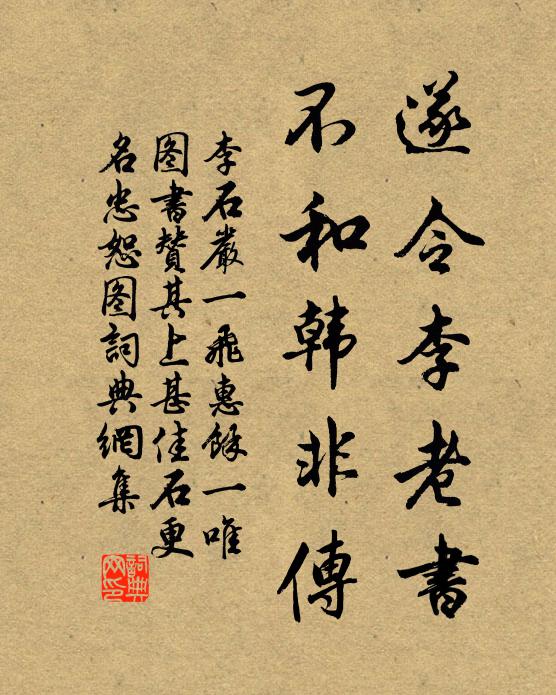 遂令李老書
不和韩非傳
李石嚴一飛惠餘一唯
图書贊其上甚佳石更
名忠恕图詞典網集
詞典网印